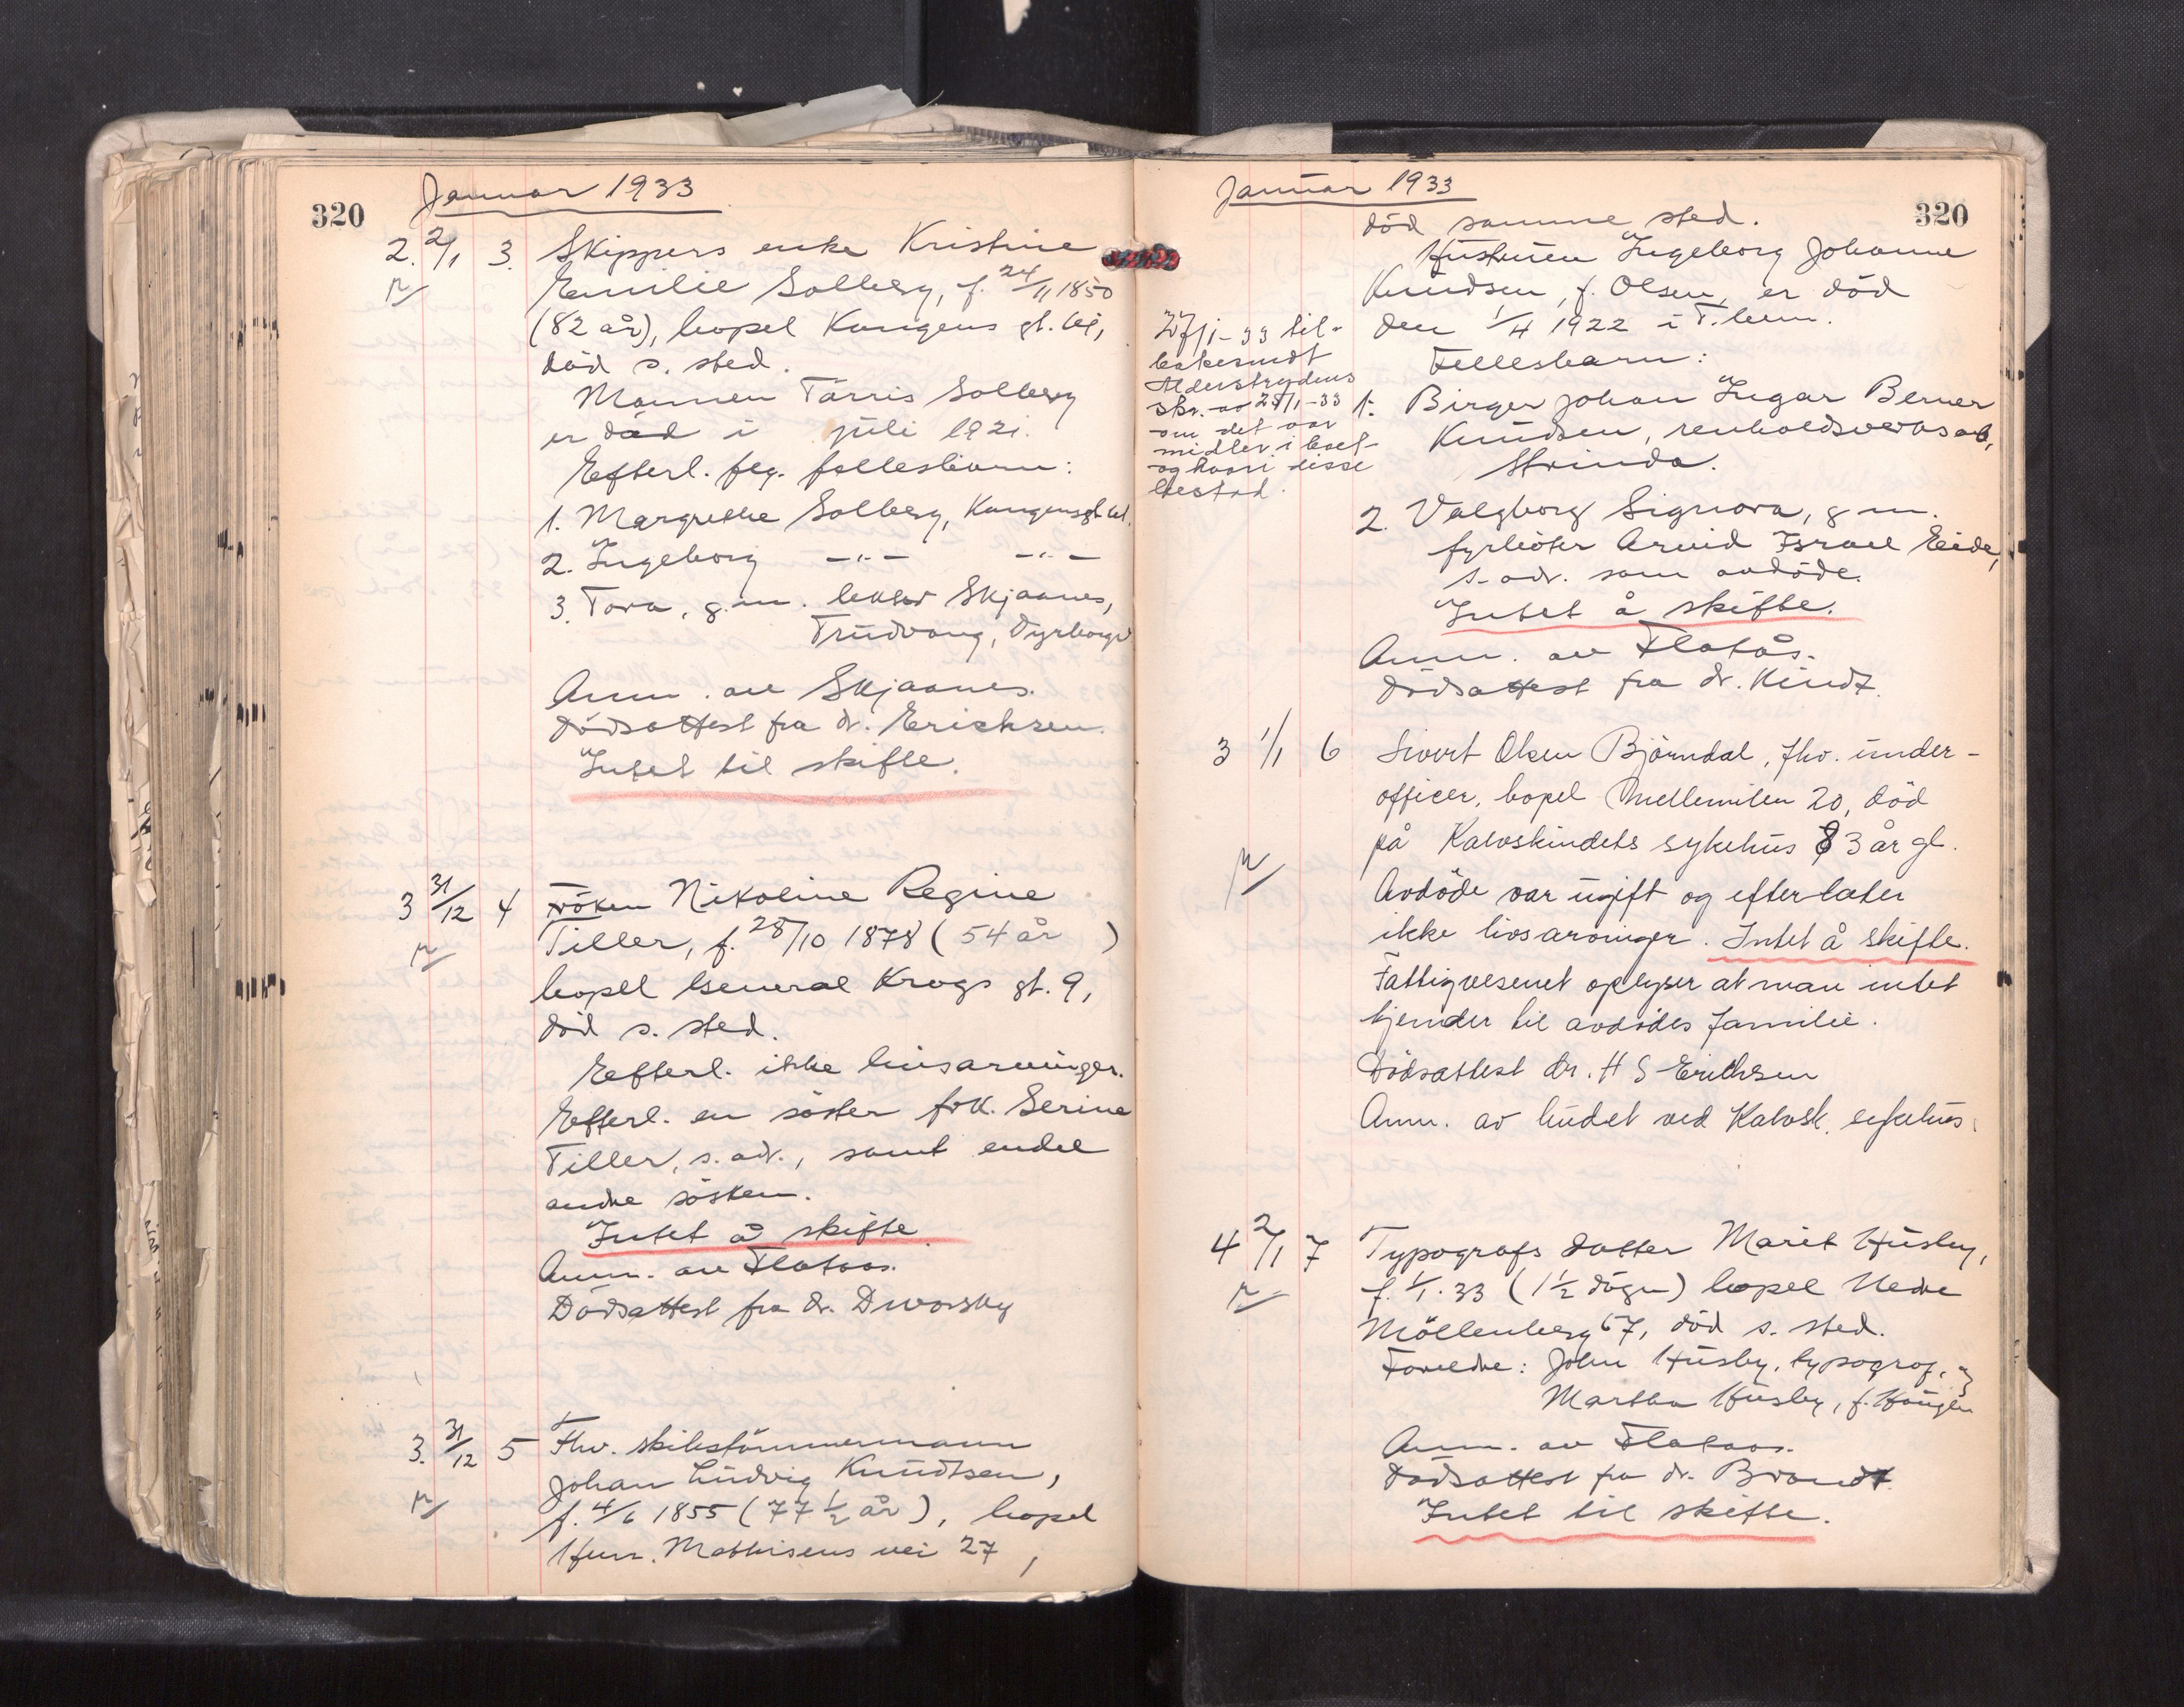 320
Januar 1933
2. 2/1 3. Skippers enke Kristine
Emilie Solberg, f. 24/11 1850
(82 år), bopel Kongens gt.
död s. sted.
Mannen Tärris Solberg
er död i juli 1921.
Efterl. flg. fellesbarn:
1. Margrethe Solberg, Kongensgt.
2. Ingeborg -"- -"-
3. Tora, g.m. lektor Skjaanes,
Trudvang, Dyrborgv
Anm. av Skjaanes.
Dödsattest fra dr. Erichsen.
Intet til skifte.
3 31/12 4 Fröken Nikoline Regine
Tiller, f. 28/10 1878 (54 år )
bopel General Krogs gt. 9,
död s. sted.
Efterl. ikke livsarvinger.
Efterl. en söster frk. Serine
Tiller, s. adr., samt endel
andre sösken.
Intet å skifte.
Anm. av Flataas.
Dödsattest fra dr. Dworsky
3. 31/12 5 Fhv. skibstömmermann
Johan Ludvig Knudsen,
f. 4/6 1855 (77 1/2 år), bopel
Hur. Mathisens vei 27,
320
Januar 1933
död samme sted.
Hustruen Ingeborg Johanne
Knudsen, f. Olsen, er död
den 1/4 1922 i T.hem.
Fellesbarn:
27/1-33 til-
bakesendt
Alderstrydens
skr. av 25/1-33
om det var
midler i boet
og hvori disse
bestod.
1. Birger Johan Ingar Berner
Knudsen, renholdsverksarb,
Strinda.
2. Valgborg Signora, g m.
fyrböter Arvid Israel Eide,
s. adr. som avdöde.
Intet å skifte.
Anm. av Flatås.
Dödsattest fra dr. Kindt.
3 1/1 6 Sivert Olsen Björndal, fhv. under-
officer, bopel Mellemilen 20, död
på Kalvskindets sykehus 83 år gl.
Avdöde var ugift og efterlater
ikke livsarvinger. Intet å skifte.
Fattigvesenet oplyser at man intet
kjender til avdödes familie.
Dödsattest dr. H S Erichsen
Anm. av budet ved Kalvsk. sykehus.
4 2/1 7 Typografs datter Marit Husby,
f. 1/1. 33 (1 1/2 dögn) bopel Nedre
Möllenberg 67, död s. sted.
Foreldre: John Husby, typograf, og
Martha Husby, f. Haugen
Anm. av Flataas.
Dödsattest fra dr. Brandt.
Intet til skifte.